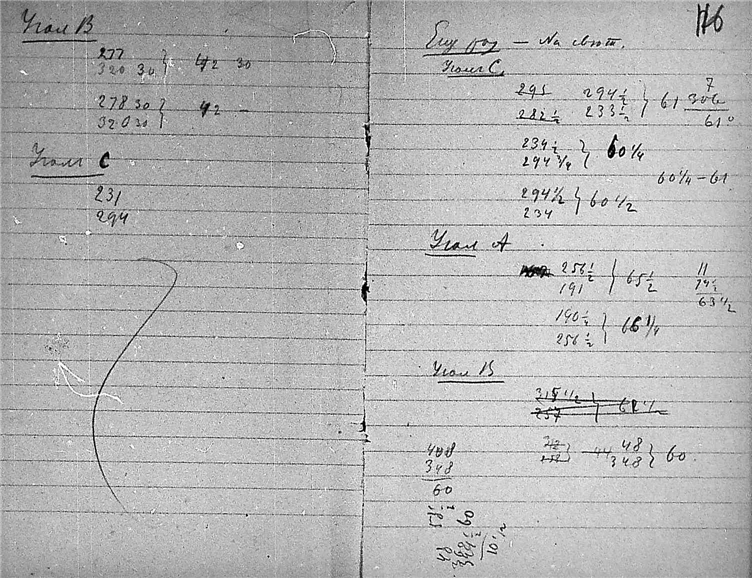 Угол В
277
320 30 } 42 30
278 30
320 30 } 42 —
Угол С
231
294
116
Еще раз — На свот.
Угол С.
295 294½
282½ 233½ } 61
7
306
61°
234½
294¾ } 60¼
60¼ – 61
294½
234 } 60½
Угол А
256½
191 } 65½
11
63½
190½
256½ } 66¼
Угол В
257
48
348 } 60
408
348
60
60
48
10½